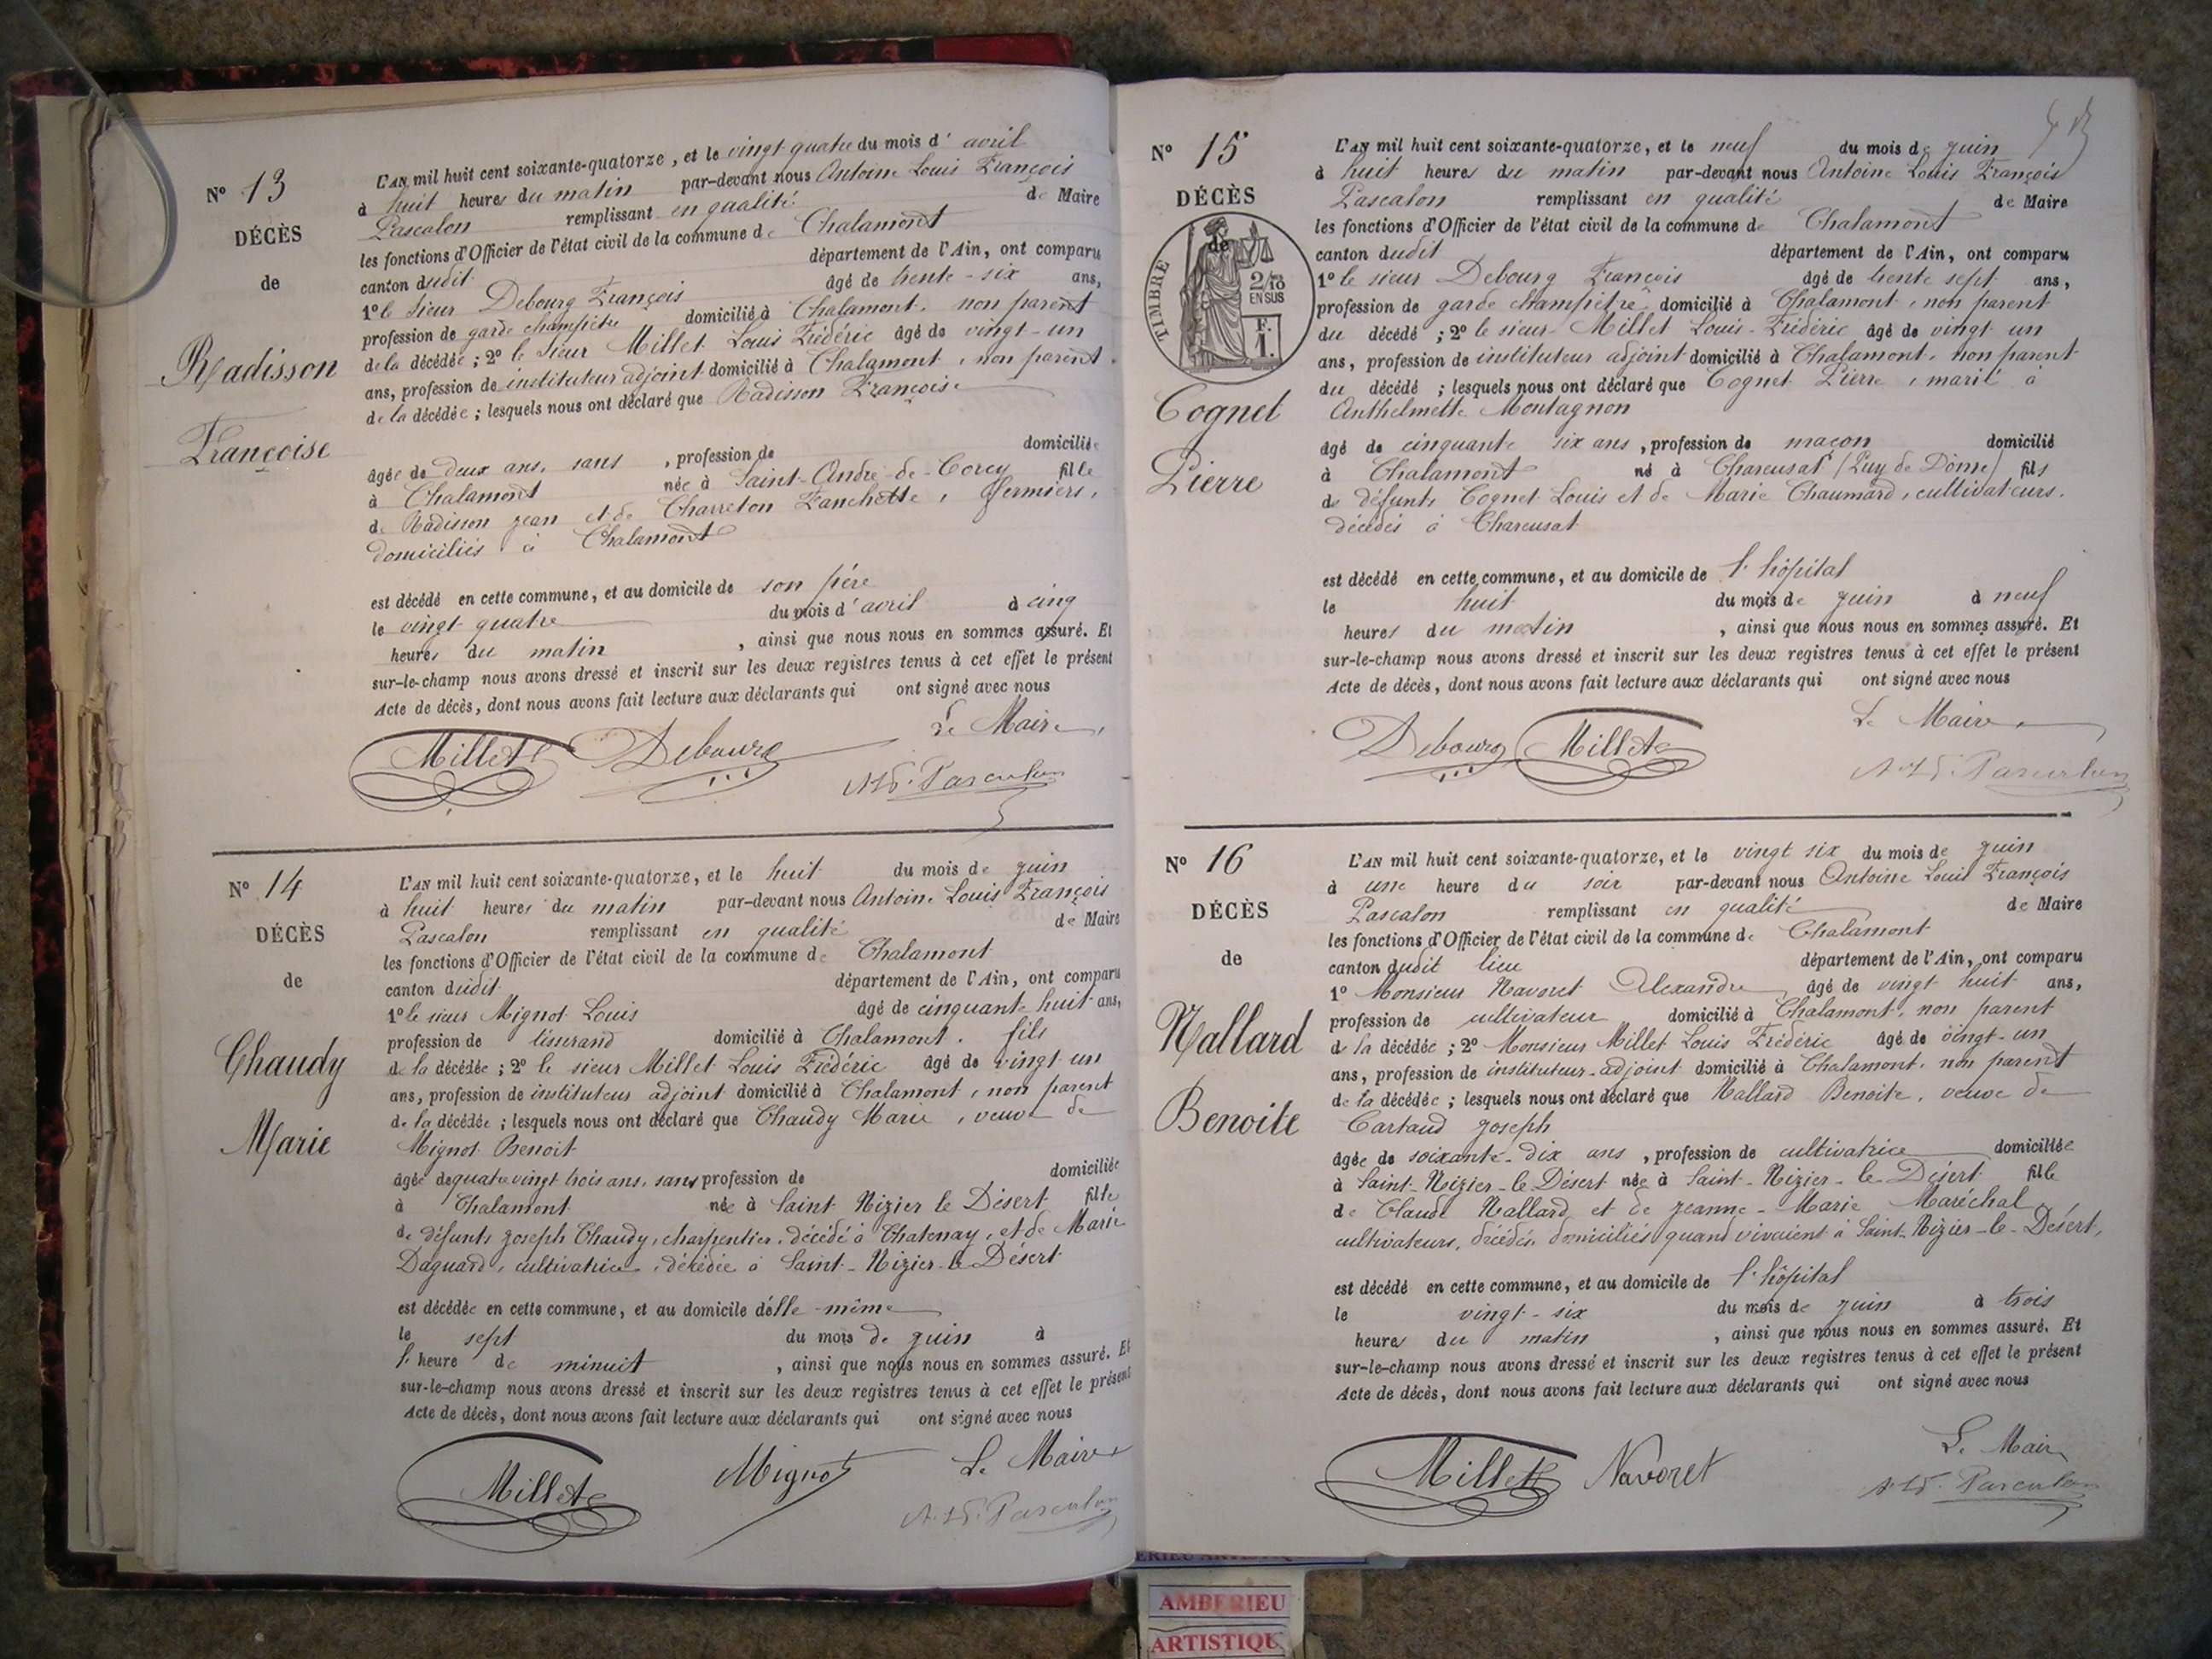 N° 13
DÉCÈS
de
Radisson
Françoise
L'AN mil huit cent soixante-quatorze, et le vingt quatre du mois d'avril
à huit heures du matin par-devant nous Antoine Louis François
Pascalon remplissant en qualité de Maire
les fonctions d'Officier de l'état civil de la commune de Chalamont
canton dudit département de l'Ain, ont comparu
1° le sieur Debourg François âgé de trente-six ans,
profession de garde champêtre domicilié à Chalamont, non parent
de la décédée ; 2° le sieur Millet Louis Frédéric âgé de vingt-un
ans, profession de instituteur adjoint domicilié à Chalamont, non parent
de la décédée ; lesquels nous ont déclaré que Radisson Françoise
âgée de deux ans, sans , profession de domiciliée
à Chalamont née à Saint-André-de-Corcy fille
de Radisson Jean et de Charreton Fanchette, fermiers,
domiciliés à Chalamont
est décédé en cette commune, et au domicile de son père
le vingt quatre du mois d'avril à cinq
heures du matin , ainsi que nous nous en sommes assuré. Et
sur-le-champ nous avons dressé et inscrit sur les deux registres tenus à cet effet le présent
Acte de décès, dont nous avons fait lecture aux déclarants qui ont signé avec nous
Le Maire,
Millet Debourg
A.L.F. Pascalon
N° 14
DÉCÈS
de
Chaudy
Marie
L'AN mil huit cent soixante-quatorze, et le huit du mois de juin
à huit heures du matin par-devant nous Antoine Louis François
Pascalon remplissant en qualité de Maire
les fonctions d'Officier de l'état civil de la commune de Chalamont
canton dudit département de l'Ain, ont comparu
1° le sieur Mignot Louis âgé de cinquante huit ans,
profession de tisserand domicilié à Chalamont, fils
de la décédée ; 2° le sieur Millet Louis Frédéric âgé de vingt-un
ans, profession de instituteur adjoint domicilié à Chalamont, non parent
de la décédée ; lesquels nous ont déclaré que Chaudy Marie, veuve de
Mignot Benoit
âgée de quatre vingt trois ans, sans profession de domiciliée
à Chalamont née à Saint Nizier le Désert fille
de défunts Joseph Chaudy, charpentier, décédé à Chatenay, et de Marie
Daguard, cultivatrice, décédée à Saint-Nizier-le-Désert
est décédée en cette commune, et au domicile d'elle-même
le sept du mois de juin à
l'heure de minuit , ainsi que nous nous en sommes assuré. Et
sur-le-champ nous avons dressé et inscrit sur les deux registres tenus à cet effet le présent
Acte de décès, dont nous avons fait lecture aux déclarants qui ont signé avec nous
Millet Mignot Le Maire
A.L.F. Pascalon
N° 15
DÉCÈS
de
TIMBRE
2/10
EN SUS
F.
1.
Cognet
Pierre
L'AN mil huit cent soixante-quatorze, et le neuf du mois de juin
à huit heures du matin par-devant nous Antoine Louis François
Pascalon remplissant en qualité de Maire
les fonctions d'Officier de l'état civil de la commune de Chalamont
canton dudit département de l'Ain, ont comparu
1° le sieur Debourg François âgé de trente sept ans,
profession de garde champêtre domicilié à Chalamont, non parent
du décédé ; 2° le sieur Millet Louis-Frédéric âgé de vingt un
ans, profession de instituteur adjoint domicilié à Chalamont, non parent
du décédé ; lesquels nous ont déclaré que Cognet Pierre, marié à
Anthelmette Montagnon
âgé de cinquante six ans , profession de maçon domicilié
à Chalamont né à Chareusat (Puy de Dôme) fils
de défunts Cognet Louis et de Marie Chaumard, cultivateurs,
décédés à Chareusat
est décédé en cette commune, et au domicile de l'hôpital
le huit du mois de juin à neuf
heures du matin , ainsi que nous nous en sommes assuré. Et
sur-le-champ nous avons dressé et inscrit sur les deux registres tenus à cet effet le présent
Acte de décès, dont nous avons fait lecture aux déclarants qui ont signé avec nous
Le Maire
Debourg Millet
A.L.F. Pascalon
N° 16
DÉCÈS
de
Nallard
Benoite
L'AN mil huit cent soixante-quatorze, et le vingt six du mois de juin
à une heure du soir par-devant nous Antoine Louis François
Pascalon remplissant en qualité de Maire
les fonctions d'Officier de l'état civil de la commune de Chalamont
canton dudit lieu département de l'Ain, ont comparu
1° Monsieur Navoret Alexandre âgé de vingt huit ans,
profession de cultivateur domicilié à Chalamont, non parent
de la décédée ; 2° Monsieur Millet Louis Frédéric âgé de vingt-un
ans, profession de instituteur-adjoint domicilié à Chalamont, non parent
de la décédée ; lesquels nous ont déclaré que Nallard Benoite, veuve de
Cartaud Joseph
âgée de soixante-dix ans , profession de cultivatrice domiciliée
à Saint-Nizier-le-Désert née à Saint-Nizier-le-Désert fille
de Claude Nallard et de Jeanne-Marie Maréchal
cultivateurs, décédés, domiciliés quand vivaient à Saint-Nizier-le-Désert,
est décédé en cette commune, et au domicile de l'hôpital
le vingt-six du mois de juin à trois
heures du matin , ainsi que nous nous en sommes assuré. Et
sur-le-champ nous avons dressé et inscrit sur les deux registres tenus à cet effet le présent
Acte de décès, dont nous avons fait lecture aux déclarants qui ont signé avec nous
Le Maire
Millet Navoret
A.L.F. Pascalon
AMBERIEU
ARTISTIQU